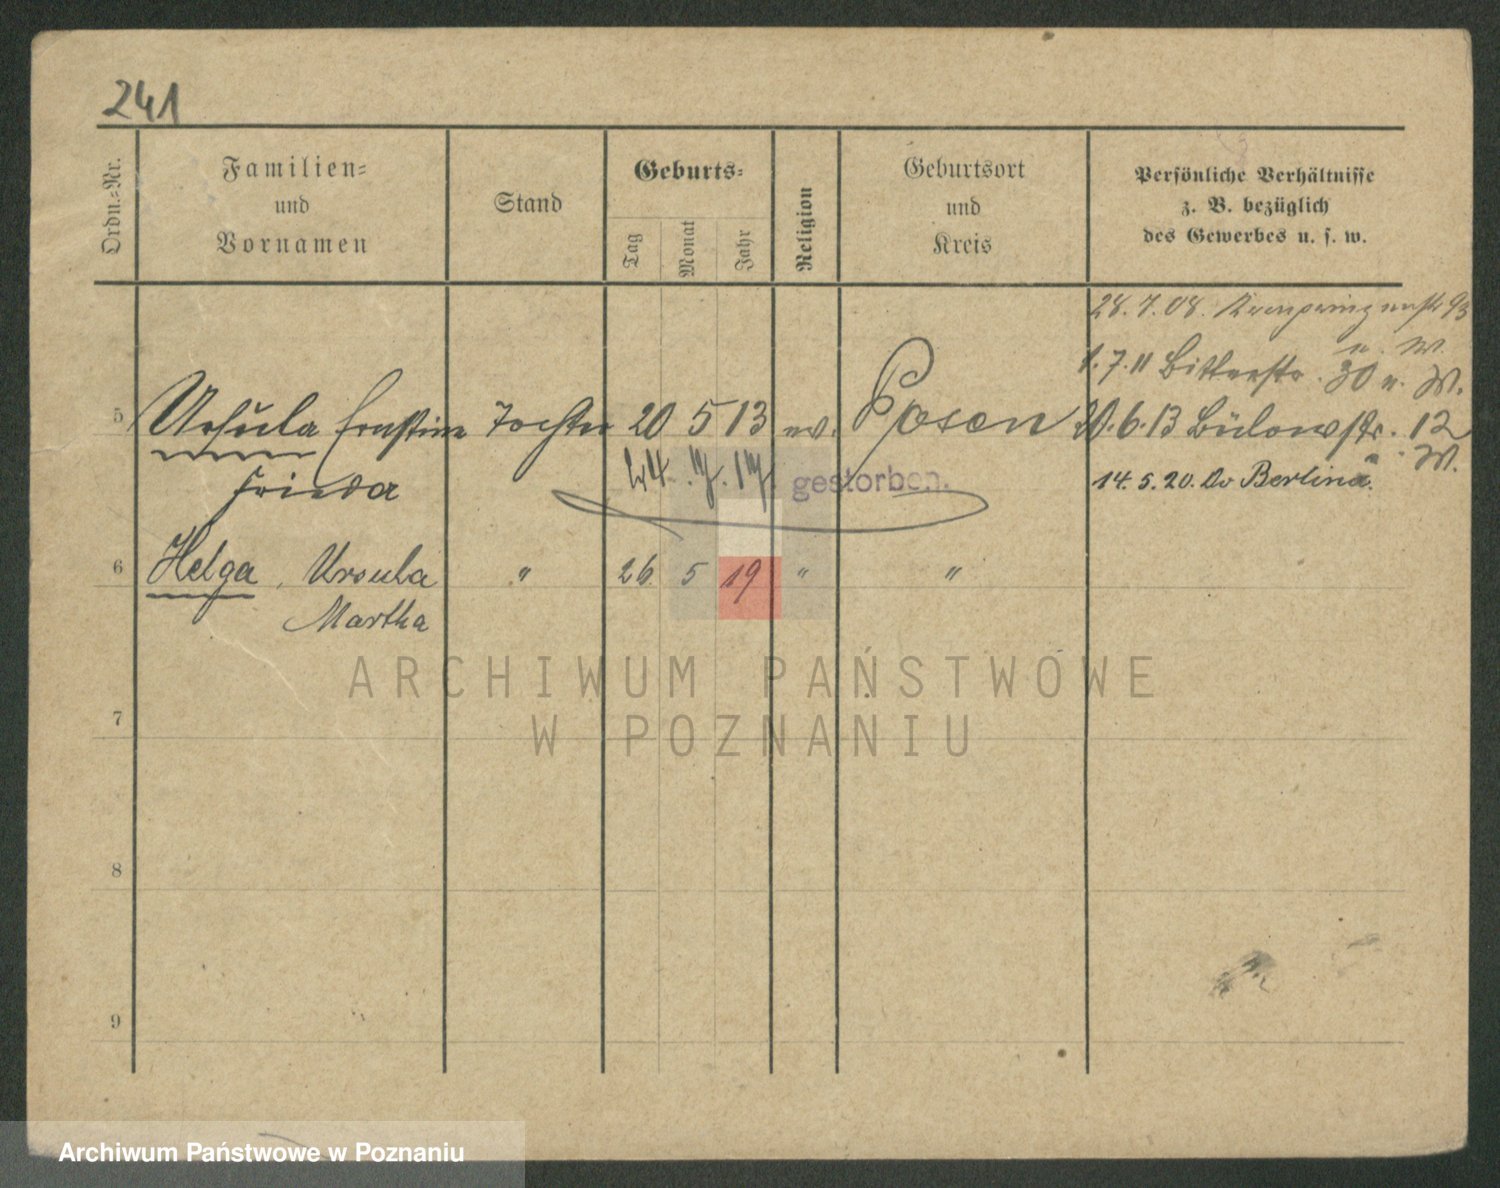 241
Ordn.-Nr.
Familien-
und
Vornamen
Stand
Geburts-
Tag
Monat
Jahr
Religion
Geburtsort
und
Kreis
Persönliche Verhältnisse
z. B. bezüglich
des Gewerbes u. s. w.
28.7.08. Kronprinzenstr 93
u. W.
1.7.11 Bitterstr. 30 u. W.
5 Ursula Ernstine Tochter 20 5 13 ev. Posen 20.6.13 Bülowstr. 12
u. W.
Frieda 24. 7. 17 gestorben. 14.5.20. Berlin
6 Helga, Ursula " 26 5 19 " "
Martha
ARCHIWUM PAŃSTWOWE
W POZNANIU
7
8
9
Archiwum Państwowe w Poznaniu